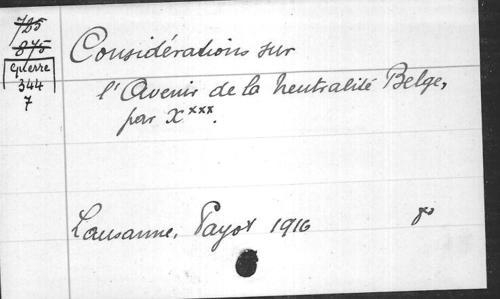 725
875
guerre
344
7
Considérations sur
l'Avenir de la neutralité Belge,
par X***.
Lausanne, Payot 1916
8°